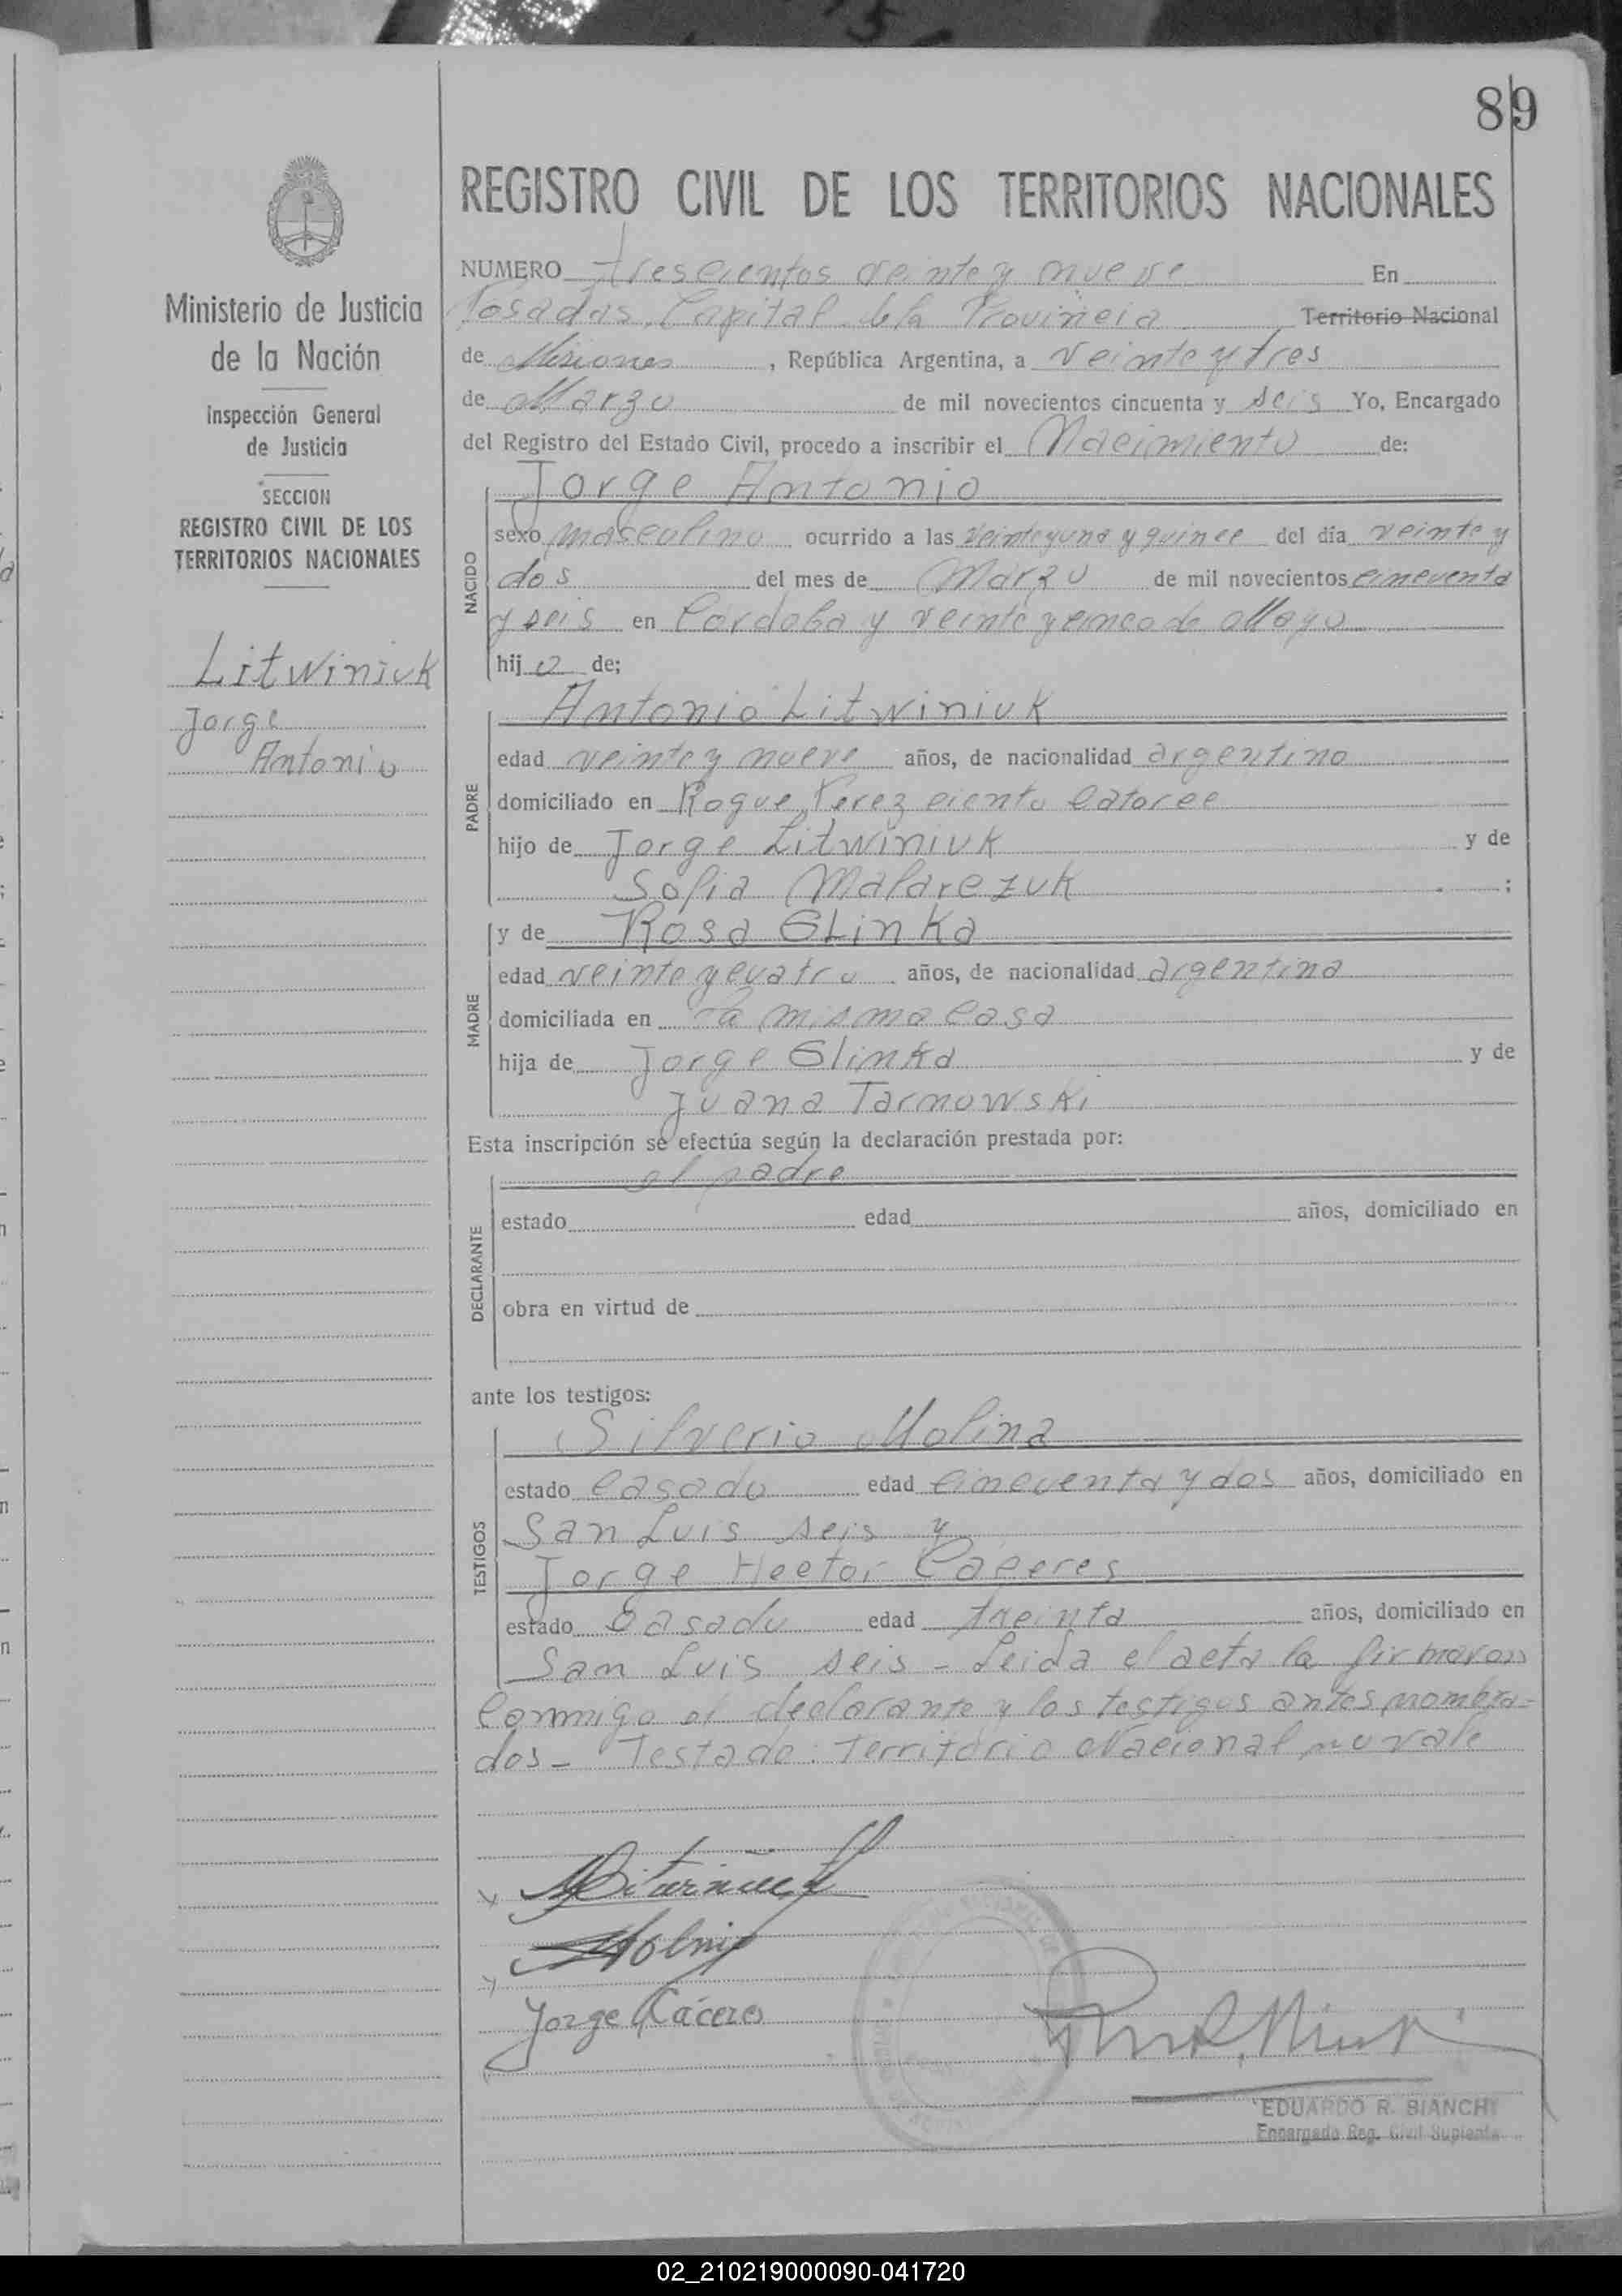 89
REGISTRO CIVIL DE LOS TERRITORIOS NACIONALES
Ministerio de Justicia
de la Nación
Inspección General
de Justicia
SECCION
REGISTRO CIVIL DE LOS
TERRITORIOS NACIONALES
Litwiniuk
Jorge
Antonio
NUMERO trescientos veinte y nueve En
Posadas, Capital de la Provincia Territorio Nacional
de Misiones, República Argentina, a veinte y tres
de Marzo de mil novecientos cincuenta y seis Yo, Encargado
del Registro del Estado Civil, procedo a inscribir el Nacimiento de:
NACIDO
Jorge Antonio
sexo masculino ocurrido a las veinte y una y quince del día veinte y
dos del mes de Marzo de mil novecientos cincuenta
y seis en Córdoba y veinte y cinco de Mayo
hijo de;
PADRE
Antonio Litwiniuk
edad veinte y nueve años, de nacionalidad argentino
domiciliado en Roque Perez ciento catorce
hijo de Jorge Litwiniuk y de
Sofia Malarczuk ;
MADRE
y de Rosa Glinka
edad veinte y cuatro años, de nacionalidad argentina
domiciliada en la misma casa
hija de Jorge Glinka y de
Juana Tarnowski
Esta inscripción se efectúa según la declaración prestada por:
DECLARANTE
el padre
estado edad años, domiciliado en
obra en virtud de
ante los testigos:
TESTIGOS
Silverio Molina
estado casado edad cincuenta y dos años, domiciliado en
San Luis seis y
Jorge Hector Caceres
estado casado edad treinta años, domiciliado en
San Luis seis - Leida el acta la firmaron
conmigo el declarante y los testigos antes nombra-
dos - Testado: Territorio Nacional no vale
Litwiniuk
Molina
Jorge Cáceres
EDUARDO R. BIANCHI
Encargado Reg. Civil Suplente
02_210219000090-041720